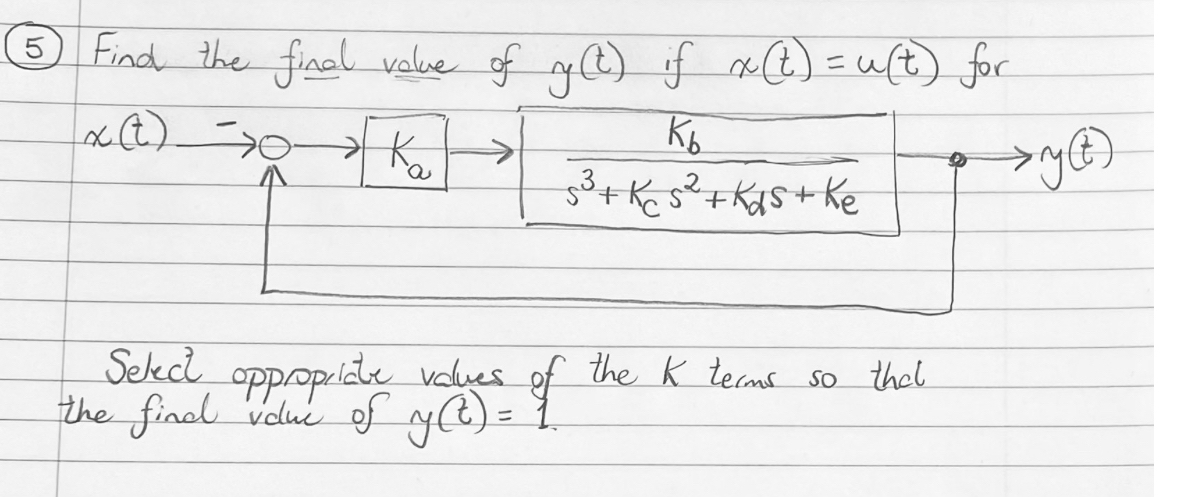 5 Find the final value of y(t) if x(t) = u(t) for
x(t) - Ka Kb y(t)
s³ + Kc s² + Kd s + Ke
Select appropriate values of the K terms so that
the final value of y(t) = 1.